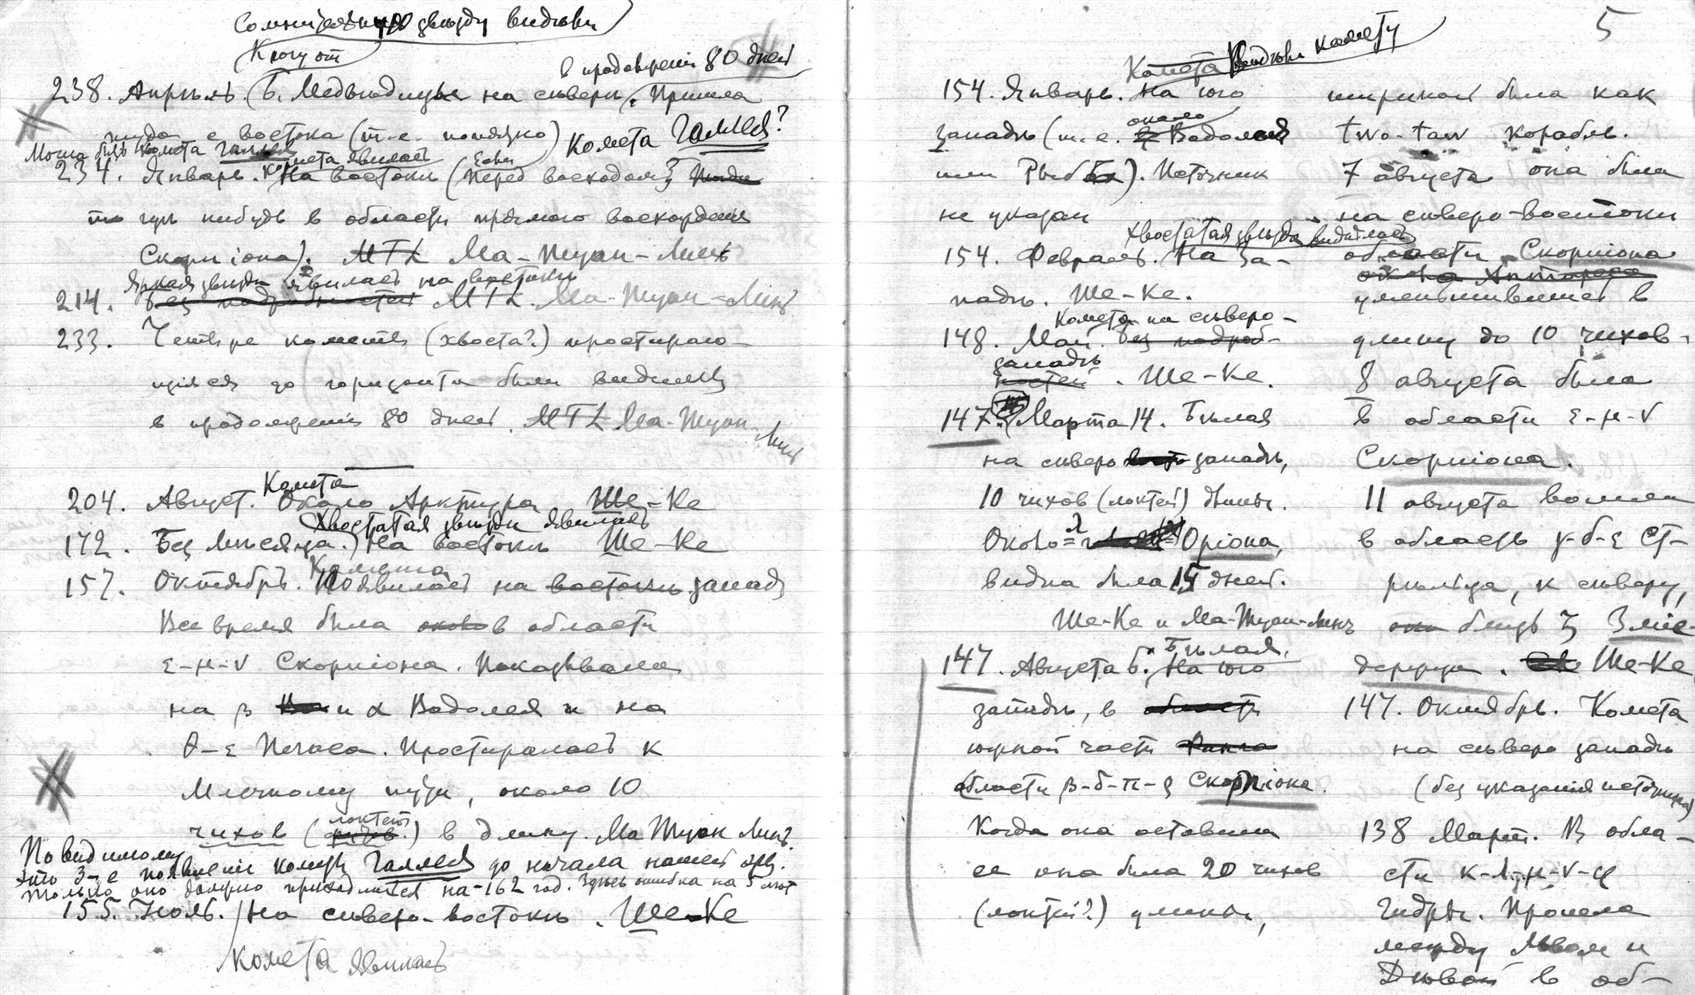 звѣзду видѣли
Кругом
въ продолженіи 80 дней
238. Апрѣль Б. Медвѣдицы на сѣверѣ. Пришла
туда с востока (т.е. попятно) Комета Галлея?
комета явилась
234. Январь. На востокѣ (перед восходом
гдѣ нибудь в области прямого восхождения
Скорпіона). МТL Ма-Туан-Линъ
Яркая звѣзда явилась на востокѣ
214. без подробностей МТL. Ма-Туан-Линъ
233. Четыре кометы (хвоста?) простираю-
щіяся до горизонта были видимы
в продолженіи 80 дней. МТL Ма-Туан-Линъ
Комета
204. Август. Около Арктура Ше-Ке
Хвостатая звѣзда явилась
172. Без мѣсяца. На востокѣ Ше-Ке
Комета
157. Октябрь. Появилась на востокѣ запад
Все время была в области
ε-μ-ν Скорпіона. Показывала
на β и α Водолея и на
θ-ε Пегаса. Простиралась к
Млечному пути, около 10
локтей
чихов ( ) в длину. Ма Туан Линъ.
По видимому
это 3-е появленіе кометы Галлея до начала нашей эры.
Только оно должно приходиться на -162 год. Здѣсь ошибка на 5 лѣт
155. Іюль. На сѣверо-востокѣ. Ше-Ке
Комета явилась
5
Комета Видѣли комету
154. Январь. На юго
западѣ (т.е. около Водолея
или Рыбъ). Источник
не указан
Хвостатая звѣзда видѣлась
154. Февраль. На за-
падѣ. Ше-Ке.
Комета на сѣверо-
148. Май. без подроб-
западѣ
ностей. Ше-Ке.
147. Марта 14. Бѣлая
на сѣверо западѣ,
10 чихов (локтей) длины.
Около λ Оріона,
видна была 15 дней.
Ше-Ке и Ма-Туан-Линъ
Бѣлая.
147. Августа 6. На юго
западѣ, в области
южной части
области β-δ-π-ρ Скорпіона.
Когда она оставила
ее она была 20 чихов
(локтей?) длины,
шириной была как
two-taw корабль.
7 августа она была
на сѣверо-востокѣ
области Скорпіона
около Антареса
уменьшившись в
длину до 10 чихов.
8 августа была
в области ε-μ-ν
Скорпіона.
11 августа вошла
в область γ-δ-ε Ст-
рѣльца, к сѣверу,
близь ζ Змѣе-
держца. Ше-Ке
147. Октябрь. Комета
на сѣверо западѣ
(без указанія источника)
138 Март. В обла-
сти κ-λ-μ-ν-φ
Гидры. Прошла
между Львом и
Дѣвой в об-